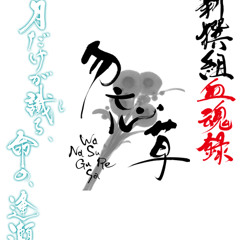 新撰組血魂録
勿忘草
Wa
Na Su
Gu Re
So
月だけが識る、命の、逢瀬
し